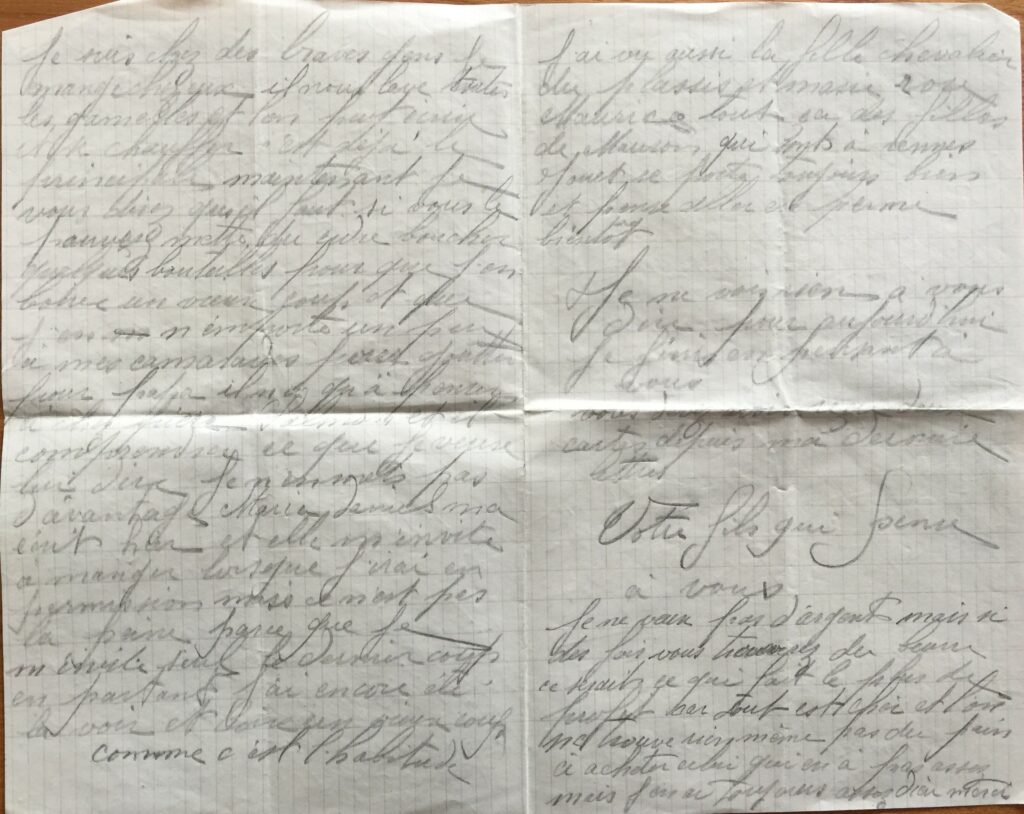 Je suis chez des braves gens Je
mange chez eux il nous lave toutes
les gamelles et l'on peut
et se chauffer c'est déjà le
principal maintenant Je
vous dires qu'il faut si vous le
pauvere mettre du cidre boucher
quelques bouteilles pour que j'en
boive un vieux coup et que
j'en n'emporte un peu
à mes camarades pour goutter
pour papa il n'y qu'à
comprendre ce que je veux
lui dire Je n'en mets pas
d'avantage Marie Daniel ma
écrit hier et elle m'invite
a manger lorsque j'irai en
permission mais ce n'est pas
la peine parce que Je
m'invite seul le dernier coup
en partant j'ai encore été
la voir et boire un vieux coup
comme c'est l'habitude
J'ai vu aussi la fille chevalier
du plassis et marie rose
Maurice tout ça des filles
de Mauron qui sont à rennes
Jouet se porte toujours bien
et pense aller en perme
bientot
Je ne vois rien a vous
dire pour aujourd'hui
Je finis en pensant à
vous
cartes depuis ma dernière
lettre
Votre fils qui pense
à vous
Je ne veux pas d'argent mais si
des fois vous trouvez du beurre
ce serait ce que fait le plus de
profit car tout est cher et l'on
ne trouve rien même pas du pain
a acheter celui qui en à pas assez
mais j'en ai toujours assez dieu merci